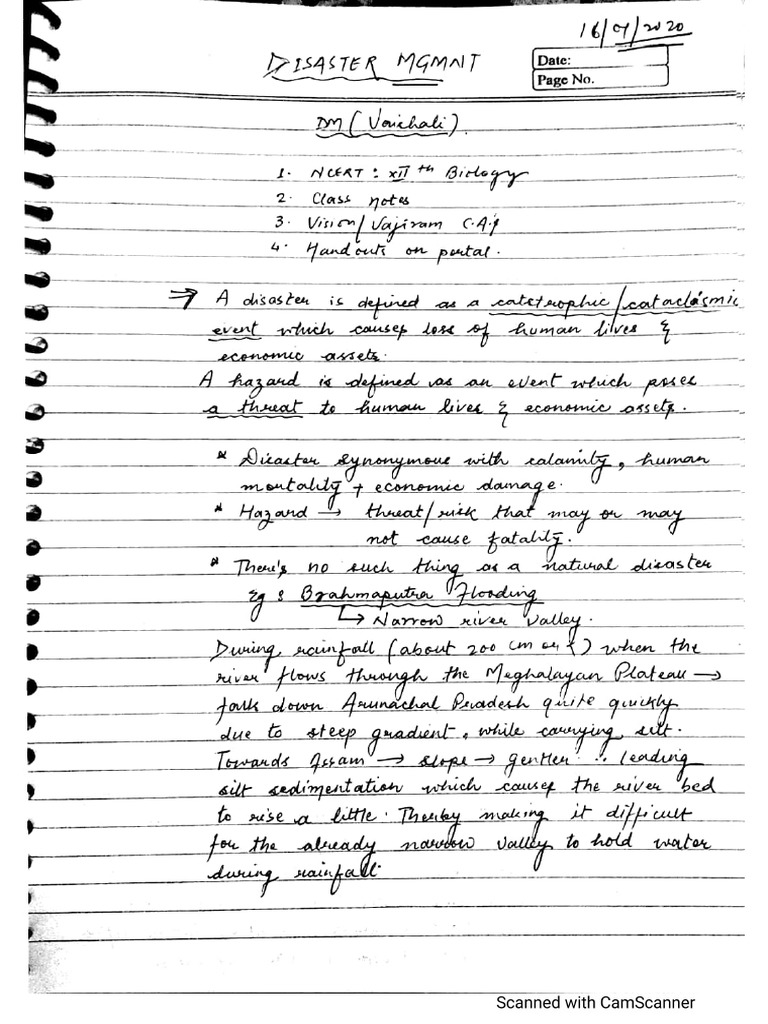 16/07/2020
DISASTER MGMNT
Date:
Page No.
DM (Vaishali)
1. NCERT : XIIth Biology
2. Class notes
3. Vision/Vajiram C.A.
4. Handouts on portal.
→ A disaster is defined as a catstrophic/cataclasmic
event which causes loss of human lives &
economic assets.
A hazard is defined as an event which poses
a threat to human lives & economic assets.
* Disaster synonymous with calamity, human
mortality + economic damage.
* Hazard → threat/risk that may or may
not cause fatality.
* There's no such thing as a natural disaster
Eg : Brahmaputra Flooding
↳ Narrow river valley.
During rainfall (about 200 cm or +) when the
river flows through the Meghalayan Plateau →
falls down Arunachal Pradesh quite quickly
due to steep gradient, while carrying silt.
Towards Assam → slope → gentler ∴ leading
silt sedimentation which causes the river bed
to rise a little. Therby making it difficult
for the already narrow valley to hold water
during rainfall.
Scanned with CamScanner